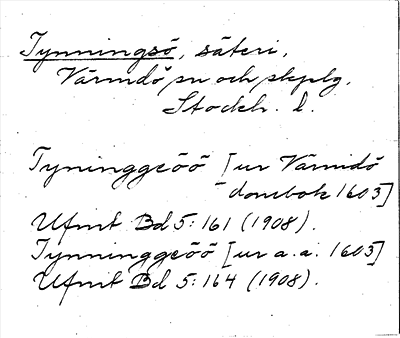 Tynningsö, säteri,
Värmdö sn och skplg.
Stockh. l.
Tyninggeöö [ur Värmdö
dombok 1603]
Ufmt Bd 5:161 (1908).
Tynninggeöö [ur a.a. 1603]
Ufmt Bd 5:164 (1908).